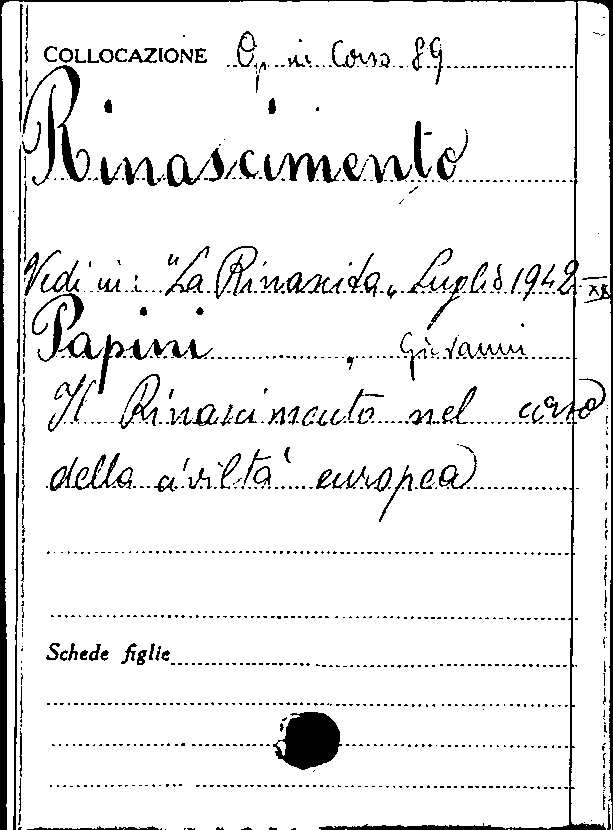 COLLOCAZIONE Op in Corso 89
Rinascimento
Vedi in: "La Rinascita„ Luglio 1942 - XX
Papini, Giovanni
Il Rinascimento nel corso
della civiltà europea
Schede figlie